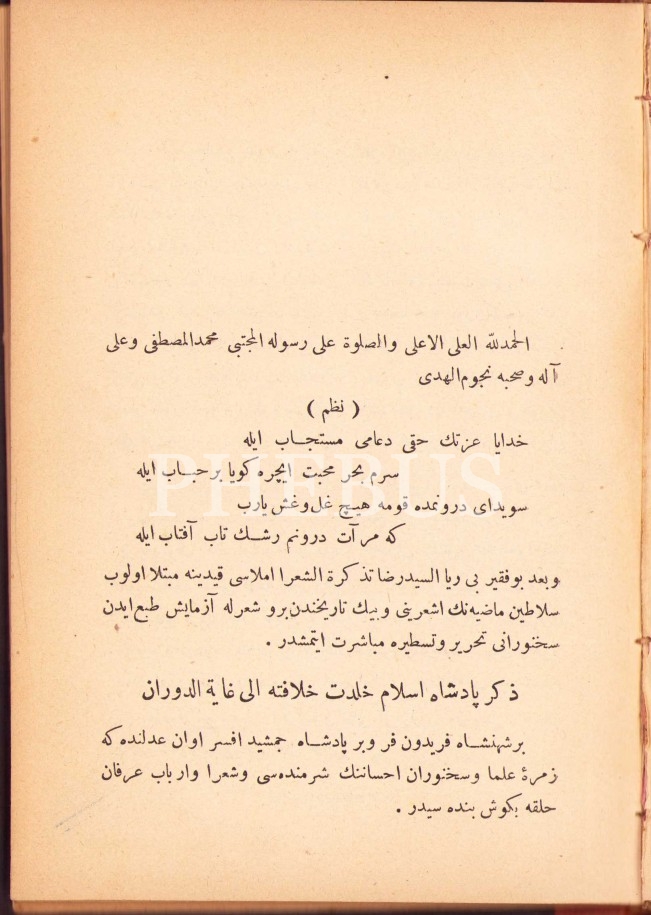 الحمدلله العلى الاعلى والصلوة على رسوله المجتبى محمدالمصطفى وعلى
آله وصحبه نجوم‌الهدى
( نظم )
خدايا عزتك حقى دعامى مستجاب ايله
سرم بحر محبت ايچره كويا بر حباب ايله
سويداى درونمده قومه هيچ غل وغش يارب
كه مرآت درونم رشك تاب آفتاب ايله
وبعد بوفقير بى ريا السيدرضا تذكرة الشعرا املاسى قيدينه مبتلا اولوب
سلاطين ماضيه‌نك اشعرينى وبيك تاريخندن برو شعرله آزمايش طبع ايدن
سخنورانى تحرير وتسطيره مباشرت ايتمشدر .
ذكر پادشاه اسلام خلدت خلافته الى غاية الدوران
بر شهنشاه فريدون فر وبر پادشاه جمشيد افسر اوان عدلنده كه
زمرۀ علما وسخنوران احساننك شرمنده‌سى وشعرا وارباب عرفان
حلقه بكوش بنده سيدر .
PHEBUS